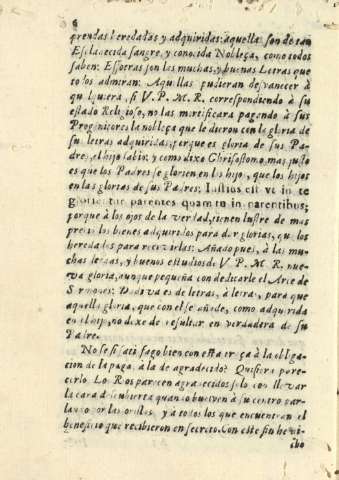 6
prendas heredadas y adquiridas: aquellas son de tan
Esclarecida sangre, y conocida Nobleça, como todos
saben: Essotras son las muchas, y buenas Letras que
todos admiran: Aquellas pudieran desvanecer à
qualquiera, si V. P. M. R. correspondiendo à su
estado Religioso, no las mortificara pagando à sus
Progenitores la nobleça que le dieron con la gloria de
su letras adquiridas, porque es gloria de sus Padres
, el hijo sabio, y como dixo Chrisostomo, mas justo
es que los Padres se glorien en los hijos, que los hijos
en las glorias de sus Padres: Iustius est ut in te
glorientur parentes quam tu in parentibus;
porque à los ojos de la verdad, tienen lustre de mas
precio los bienes adquiridos para dar glorias, que los
heredados para recivirlas: Añado pues, à las muchas
letras, y buenos estudios de V. P. M. R. nueva
gloria, aunque pequeña con dedicarle el Arte de
Sermones: Dadiva es de letras, à letras, para que
aquella gloria, que con el se añade, como adquirida
en el hijo, no dexe de resultar en verdadera de su
Padre.
No se si satisfago bien con esta
à la obligacion
de la paga, à la de agradecido? Quisiera parecerlo
. Los Rios parecen agradecidos solo con llevar
la cara descubierta quando buelven à su centro
por las orillas, y à todos los que encuentran el
beneficio que recibieron en secreto. Con este fin
cibo